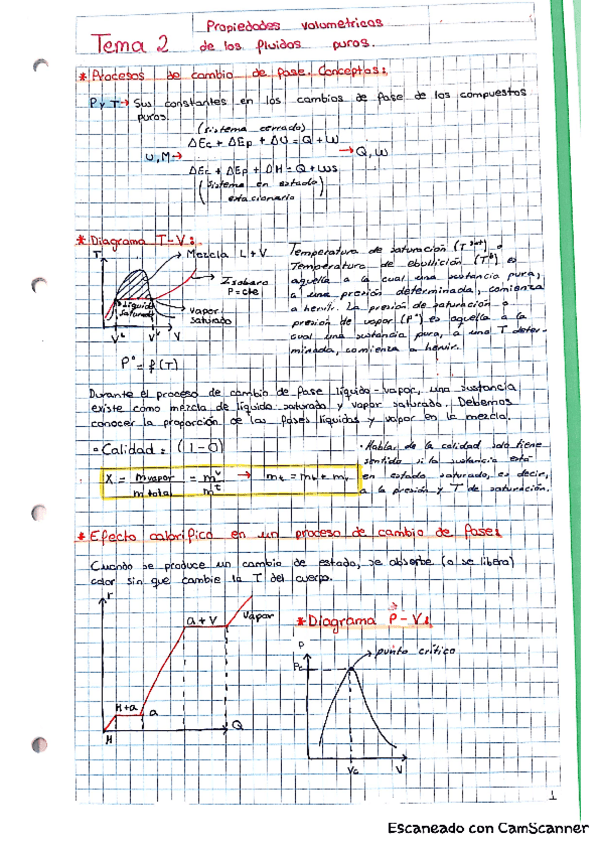 Tema 2
Propiedades volumetricas
de los fluidos puros.
* Procesos de cambio de fase. Conceptos:
P y T → Sus constantes en los cambios de fase de los compuestos
puros.
(sistema cerrado)
ΔEc + ΔEp + ΔU = Q + W
U, M →
→ Q, W
ΔEc + ΔEp + ΔH = Q + Ws
(sistema en estado
estacionario)
* Diagrama T-V:
T
Mezcla L+V
Isobara
P=cte
líquido
saturado
vapor
saturado
V
P° = f(T)
Temperatura de saturación (T^sat) o
Temperatura de ebullición (T°) es
aquella a la cual una sustancia pura,
a una presión determinada, comienza
a hervir. La presión de saturación o
presión de vapor (P°) es aquella a la
cual una sustancia pura, a una T deter-
minada, comienza a hervir.
Durante el proceso de cambio de fase líquido-vapor, una sustancia
existe como mezcla de líquido saturado y vapor saturado. Debemos
conocer la proporción de las fases líquidas y vapor en la mezcla.
• Calidad: (1-0)
X = m vapor / m total = m^v / m^t → m_t = m_L + m_v
• Hablar de la calidad solo tiene
sentido si la sustancia está
en estado saturado, es decir,
a la presión y T de saturación.
* Efecto calorífico en un proceso de cambio de fase:
Cuando se produce un cambio de estado, se absorbe (o se libera)
calor sin que cambie la T del cuerpo.
T
a+V
Vapor
H+a
a
H
Q
* Diagrama P-V:
P
Pc
punto crítico
Vc
V
1
Escaneado con CamScanner